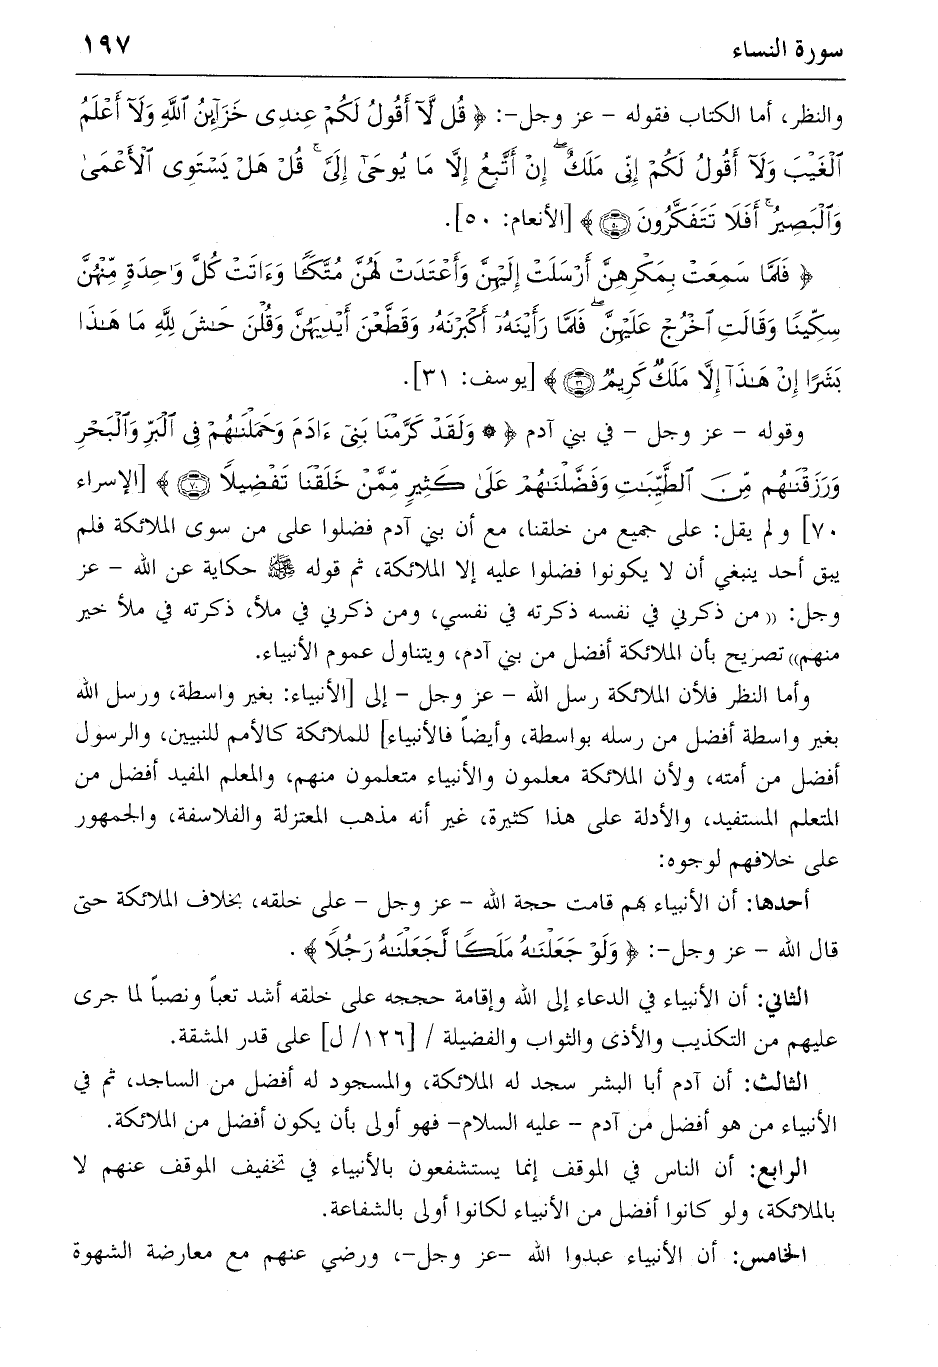 سورة النساء ١٩٧
والنظر، أما الكتاب فقوله – عز وجل–: ﴿ قُل لَّآ أَقُولُ لَكُمْ عِندِى خَزَآئِنُ ٱللَّهِ وَلَآ أَعْلَمُ
ٱلْغَيْبَ وَلَآ أَقُولُ لَكُمْ إِنِّى مَلَكٌ ۖ إِنْ أَتَّبِعُ إِلَّا مَا يُوحَىٰٓ إِلَىَّ ۚ قُلْ هَلْ يَسْتَوِى ٱلْأَعْمَىٰ
وَٱلْبَصِيرُ ۚ أَفَلَا تَتَفَكَّرُونَ ۝٥٠ ﴾ [الأنعام: ٥٠].
﴿ فَلَمَّا سَمِعَتْ بِمَكْرِهِنَّ أَرْسَلَتْ إِلَيْهِنَّ وَأَعْتَدَتْ لَهُنَّ مُتَّكَـًٔا وَءَاتَتْ كُلَّ وَٰحِدَةٍ مِّنْهُنَّ
سِكِّينًا وَقَالَتِ ٱخْرُجْ عَلَيْهِنَّ ۖ فَلَمَّا رَأَيْنَهُۥٓ أَكْبَرْنَهُۥ وَقَطَّعْنَ أَيْدِيَهُنَّ وَقُلْنَ حَـٰشَ لِلَّهِ مَا هَـٰذَا
بَشَرًا إِنْ هَـٰذَآ إِلَّا مَلَكٌ كَرِيمٌ ۝٣١ ﴾ [يوسف: ٣١].
وقوله – عز وجل – في بني آدم ﴿ ۞ وَلَقَدْ كَرَّمْنَا بَنِىٓ ءَادَمَ وَحَمَلْنَـٰهُمْ فِى ٱلْبَرِّ وَٱلْبَحْرِ
وَرَزَقْنَـٰهُم مِّنَ ٱلطَّيِّبَـٰتِ وَفَضَّلْنَـٰهُمْ عَلَىٰ كَثِيرٍ مِّمَّنْ خَلَقْنَا تَفْضِيلًا ۝٧٠ ﴾ [الإسراء
٧٠] ولم يقل: على جميع من خلقنا، مع أن بني آدم فضلوا على من سوى الملائكة فلم
يبق أحد ينبغي أن لا يكونوا فضلوا عليه إلا الملائكة، ثم قوله ﷺ حكاية عن الله – عز
وجل: ((من ذكرني في نفسه ذكرته في نفسي، ومن ذكرني في ملأ، ذكرته في ملأ خير
منهم)) تصريح بأن الملائكة أفضل من بني آدم، ويتناول عموم الأنبياء.
وأما النظر فلأن الملائكة رسل الله – عز وجل – إلى [الأنبياء: بغير واسطة، ورسل الله
بغير واسطة أفضل من رسله بواسطة، وأيضاً فالأنبياء] للملائكة كالأمم للنبيين، والرسول
أفضل من أمته، ولأن الملائكة معلمون والأنبياء متعلمون منهم، والمعلم المفيد أفضل من
المتعلم المستفيد، والأدلة على هذا كثيرة، غير أنه مذهب المعتزلة والفلاسفة، والجمهور
على خلافهم لوجوه:
أحدها: أن الأنبياء بهم قامت حجة الله – عز وجل – على خلقه، بخلاف الملائكة حتى
قال الله – عز وجل–: ﴿ وَلَوْ جَعَلْنَـٰهُ مَلَكًا لَّجَعَلْنَـٰهُ رَجُلًا ﴾ .
الثاني: أن الأنبياء في الدعاء إلى الله وإقامة حججه على خلقه أشد تعباً ونصباً لما جرى
عليهم من التكذيب والأذى والثواب والفضيلة / [١٢٦/ ل] على قدر المشقة.
الثالث: أن آدم أبا البشر سجد له الملائكة، والمسجود له أفضل من الساجد، ثم في
الأنبياء من هو أفضل من آدم – عليه السلام– فهو أولى بأن يكون أفضل من الملائكة.
الرابع: أن الناس في الموقف إنما يستشفعون بالأنبياء في تخفيف الموقف عنهم لا
بالملائكة، ولو كانوا أفضل من الأنبياء لكانوا أولى بالشفاعة.
الخامس: أن الأنبياء عبدوا الله –عز وجل–، ورضي عنهم مع معارضة الشهوة